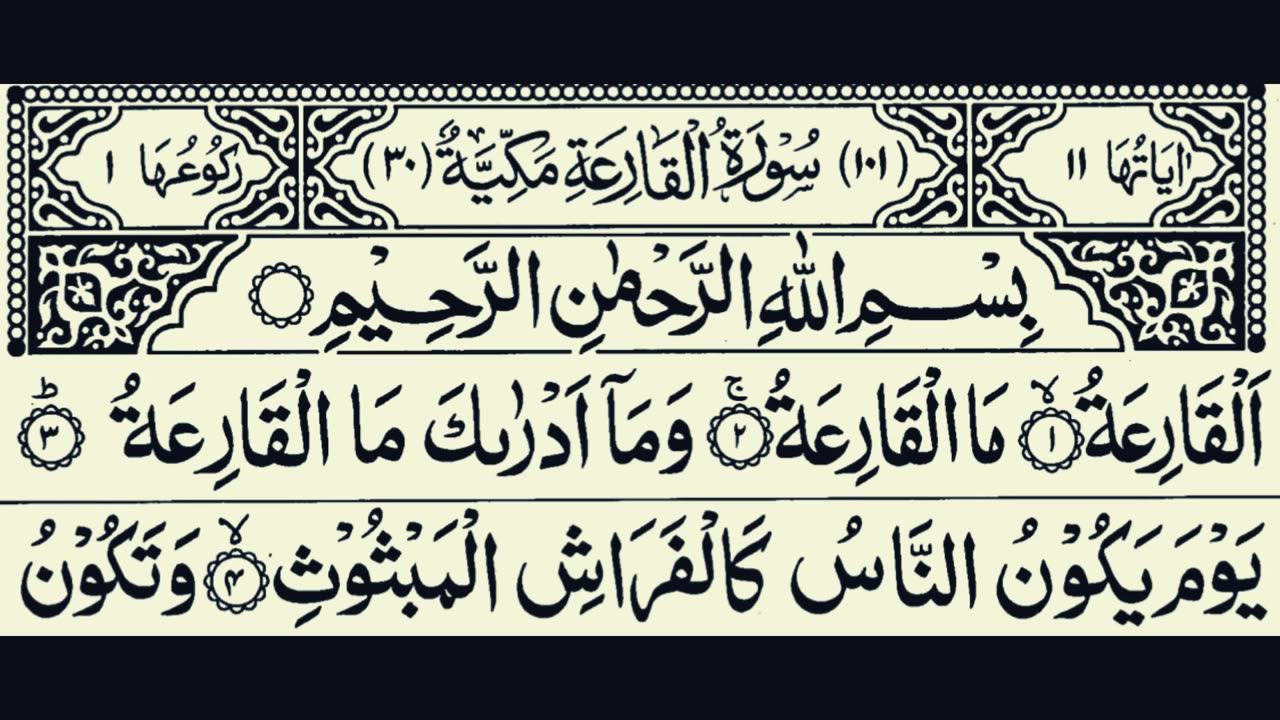 اٰيَاتُهَا ١١ (١٠١) سُوْرَةُ الْقَارِعَةِ مَكِّيَّةٌ (٣٠) رَكُوْعُهَا ١
بِسْمِ اللّٰهِ الرَّحْمٰنِ الرَّحِيْمِ
اَلْقَارِعَةُ ۙ﴿١﴾ مَا الْقَارِعَةُ ۚ﴿٢﴾ وَمَآ اَدْرٰىكَ مَا الْقَارِعَةُ ؕ﴿٣﴾
يَوْمَ يَكُوْنُ النَّاسُ كَالْفَرَاشِ الْمَبْثُوْثِ ۙ﴿۴﴾ وَتَكُوْنُ